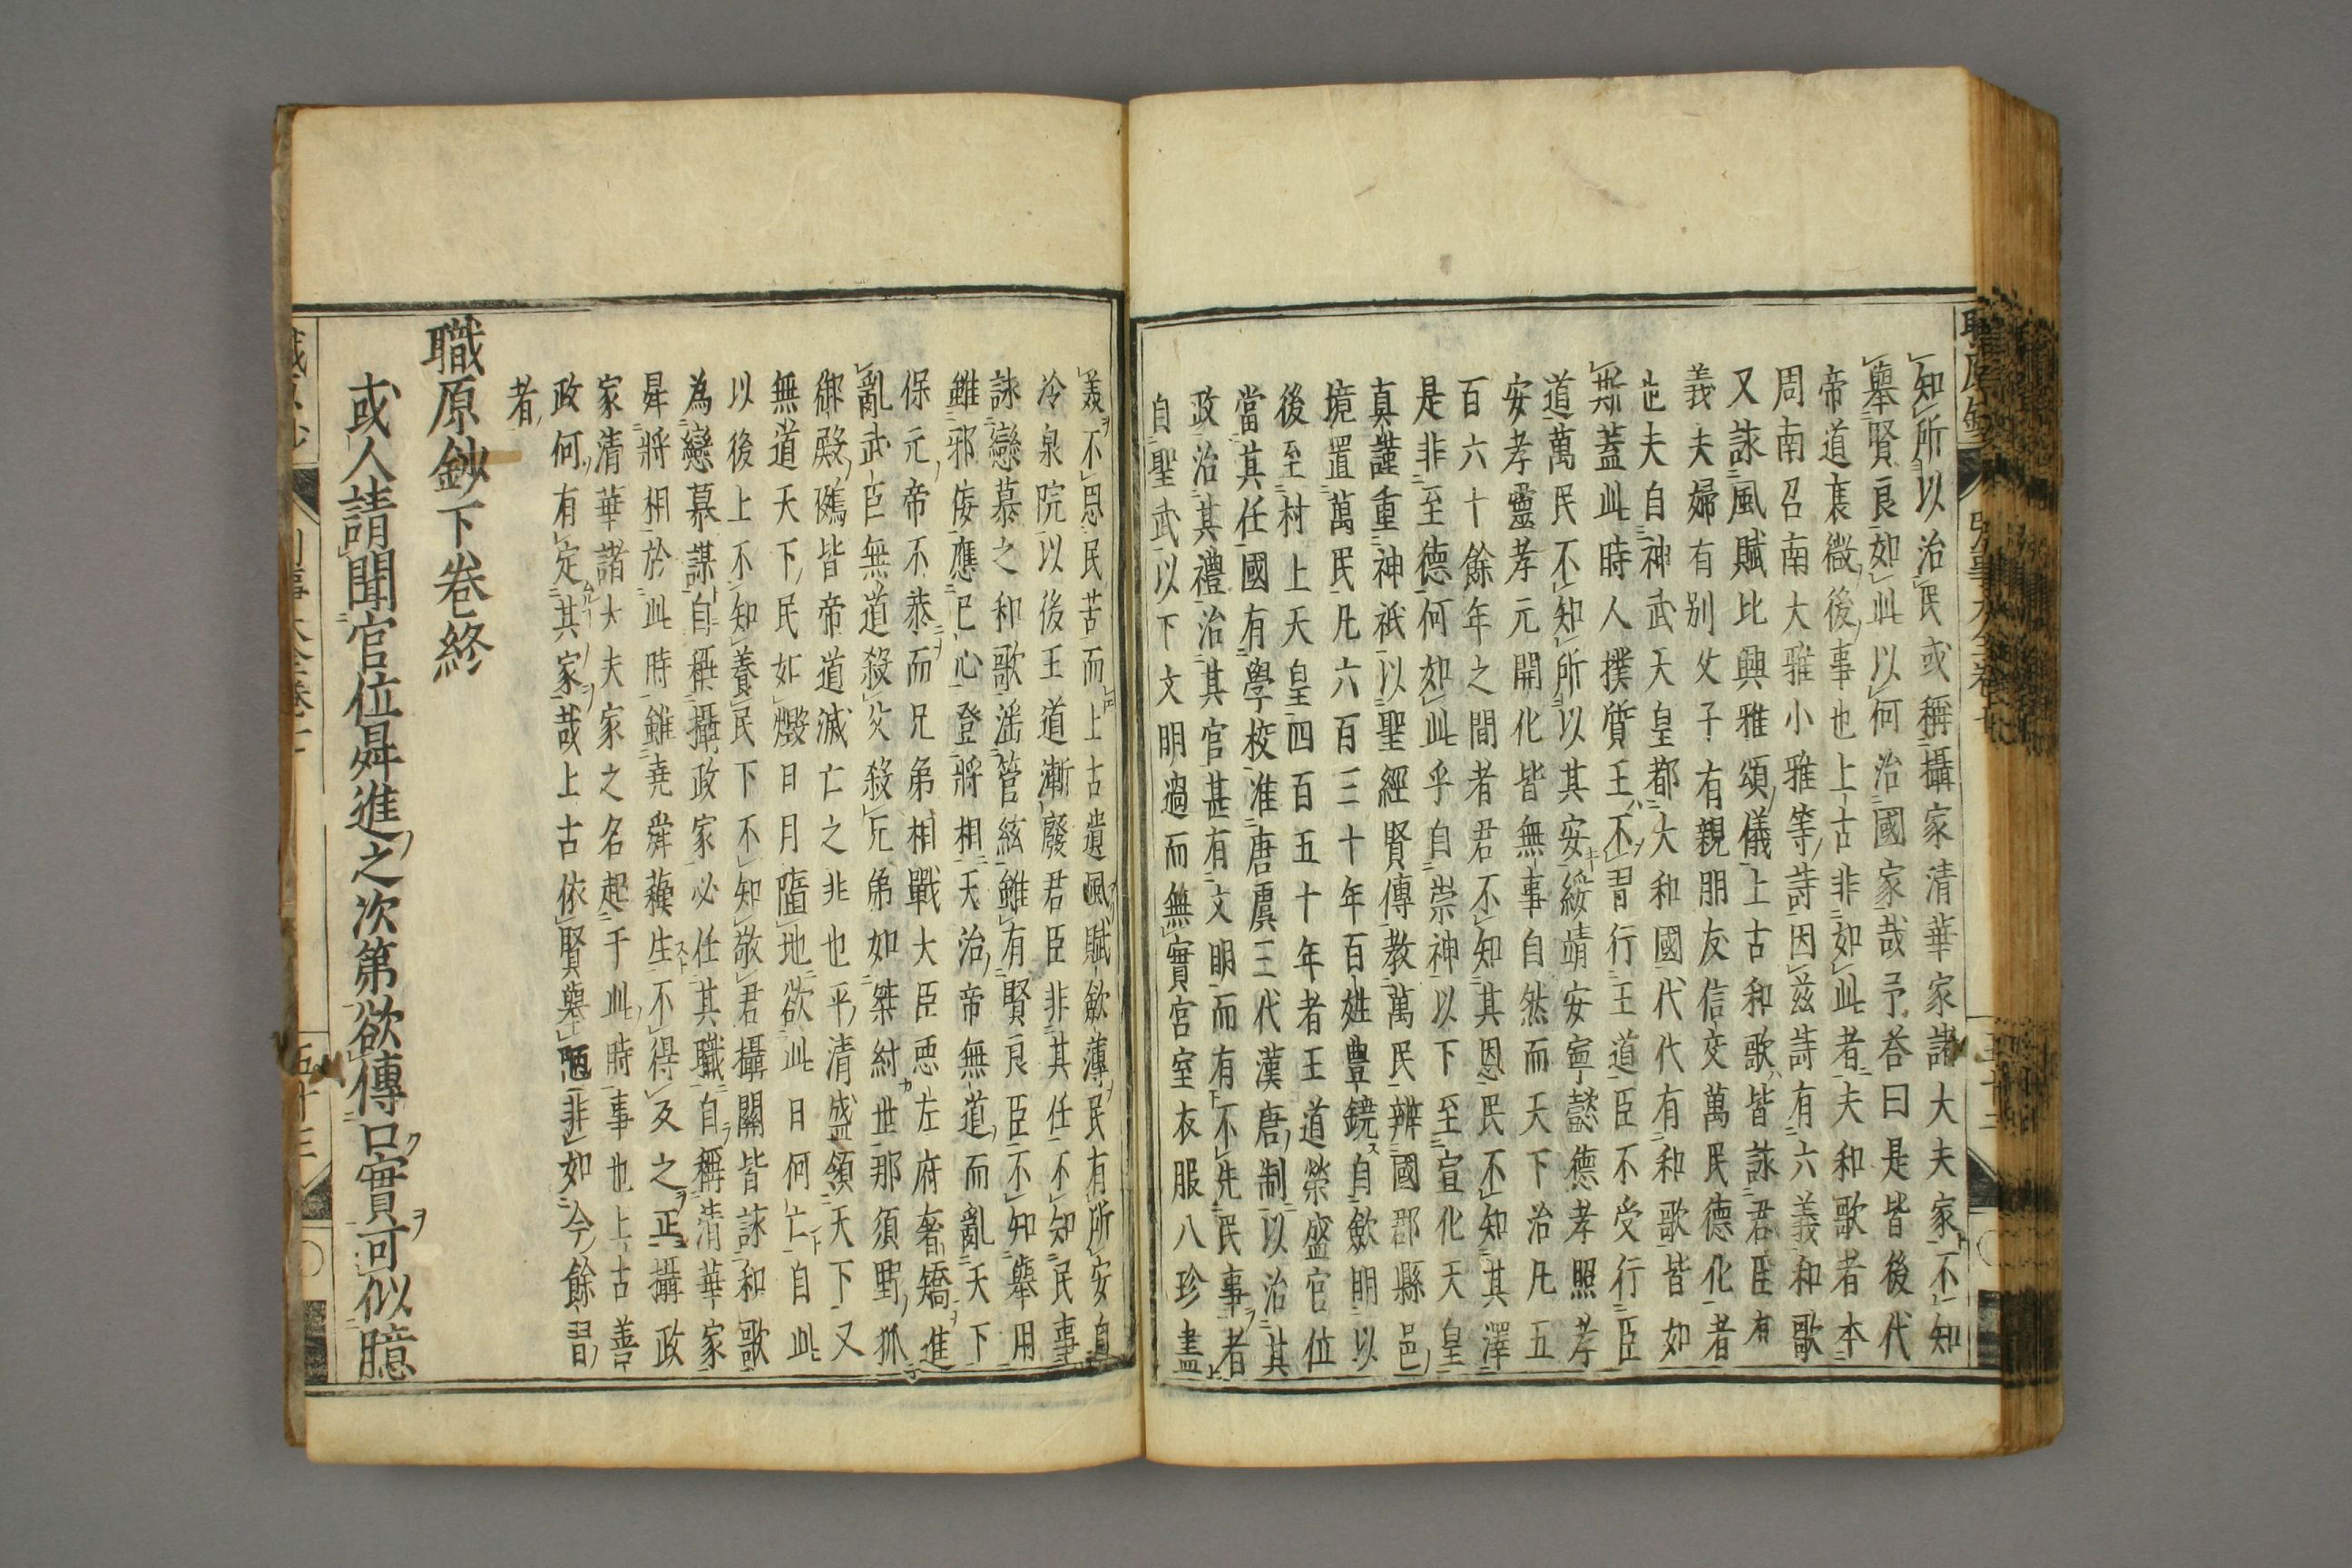 知所以治民或稱攝家清華家諸大夫家不知
舉賢良如此以何治國家哉予答曰是皆後代
帝道衰微後事也上古非如此者夫和歌者本
周南召南大雅小雅等詩因茲詩有六義和歌
又詠風賦比興雅頌儀上古和歌皆詠君臣有
義夫夫婦有別父子有親朋友信交萬民德化者
也夫自神武天皇都大和國代代有和歌皆如
斯蓋此時人撲質王不習行王道臣不受行臣
道萬民不知所以其安綏靖安寧懿德孝照孝
安孝靈孝元開化皆無事自然而天下治凡五
百六十餘年之間者君不知其恩民不知其澤
是非至德何如此乎自崇神以下至宣化天皇
真謹重神祇以聖經賢傳教萬民辨國郡縣邑
境置萬民凡六百三十年百姓豊鏡自歛明以
後至村上天皇四百五十年者王道榮盛官位
當其任國有學校准唐虞三代漢唐制以治其
政治其禮治其官甚有文明而有不先民事者
自聖武以下文明過而無實宮室衣服八珍盡
美不恩民苦而上古遺風賦歛薄民有所安自
冷泉院以後王道漸廢君臣非其任不知民事
詠戀慕之和歌滛管絃雖有賢良臣不知舉用
雖邪侫應己心登將相天治帝無道而亂天下
保元帝不恭而兄弟相戰大臣悪左府奢矯進
亂武臣無道殺父殺兄弟如桀紂世那須野狐
御殿礁皆帝道滅亡之非也平清盛領天下又
無道天下民如燬日月隨地欲此日何亡自此
以後上不知養民下不知敬君攝關皆詠和歌
為戀慕謀自稱攝政家必任其職自稱清華家
曻將相於此時雖堯舜蘓生不得反之正攝政
家清華諸大夫家之名起于此時事也上古善
政何有定其家哉上古依賢擧陋非如今餘習
者
職原鈔下卷終
或人請聞官位曻進之次第欲傳口實可似臆